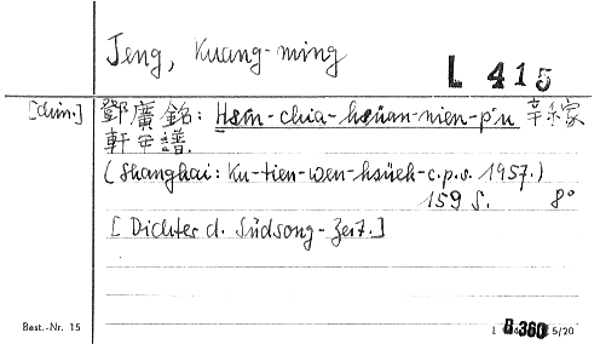 Teng, Kuang-ming
L 415
[chin.] 鄧廣銘: Hsin-chia-hsüan-nien-p'u 辛稼
軒年譜.
(Shanghai: Ku-tien-wen-hsüeh-c.p.s. 1957.)
159 S. 8°
[Dichter d. Südsong-Zeit.]
Best.-Nr. 15
B 360 5/20